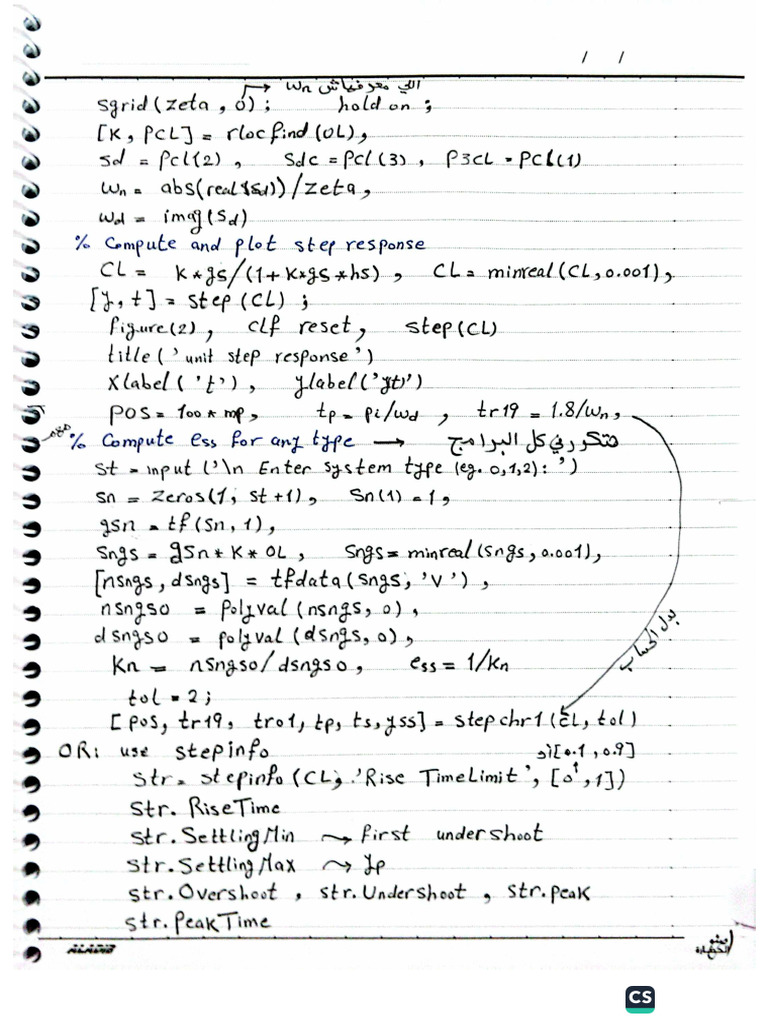 / /
→ wn اللي معرفهاش
sgrid(zeta, 0); hold on;
[K, PCL] = rlocfind(OL),
sd = Pcl(2), Sdc = Pcl(3), P3CL = PCL(1)
wn = abs(real(Sd))/zeta,
wd = imag(Sd)
% Compute and plot step response
CL = K*gs/(1+K*gs*hs), CL = minreal(CL, 0.001),
[y, t] = step(CL);
figure(2), clf reset, step(CL)
title('unit step response')
Xlabel('t'), ylabel('y(t)')
POS = 100*mp, tp = pi/wd, tr19 = 1.8/wn,
مهم
% Compute ess for any type → متكرر في كل البرامج
st = input('\n Enter system type (eg. 0,1,2): ')
sn = zeros(1, st+1), Sn(1) = 1,
gsn = tf(Sn, 1),
Sngs = gSn*K*OL, Sngs = minreal(Sngs, 0.001),
[nsngs, dsngs] = tfdata(Sngs, 'v'),
nsngso = polyval(nsngs, 0),
dsngso = polyval(dsngs, 0),
Kn = nSngso/dsngso, ess = 1/Kn
بدل الحساب
tol = 2;
[pos, tr19, tro1, tp, ts, yss] = stepchr1(CL, tol)
OR: use stepinfo
أو [0.1, 0.9]
Str = stepinfo(CL, 'Rise TimeLimit', [0, 1])
Str. RiseTime
str. SettlingMin ⤳ first undershoot
str. SettlingMax ⤳ yp
str. Overshoot, str. Undershoot, Str. peak
str. PeakTime
ALADIB
CS